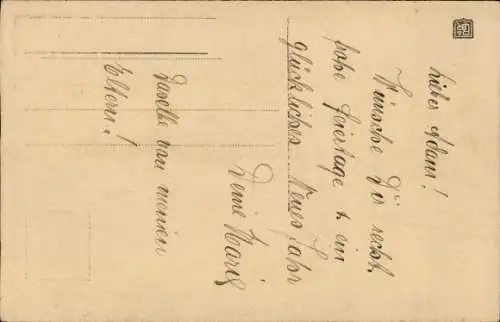 Lieber Adam!
Wünsche Dir recht
frohe Feiertage & ein
glückliches Neues Jahr
Deine Marie
Dasselbe von meinen
Eltern!